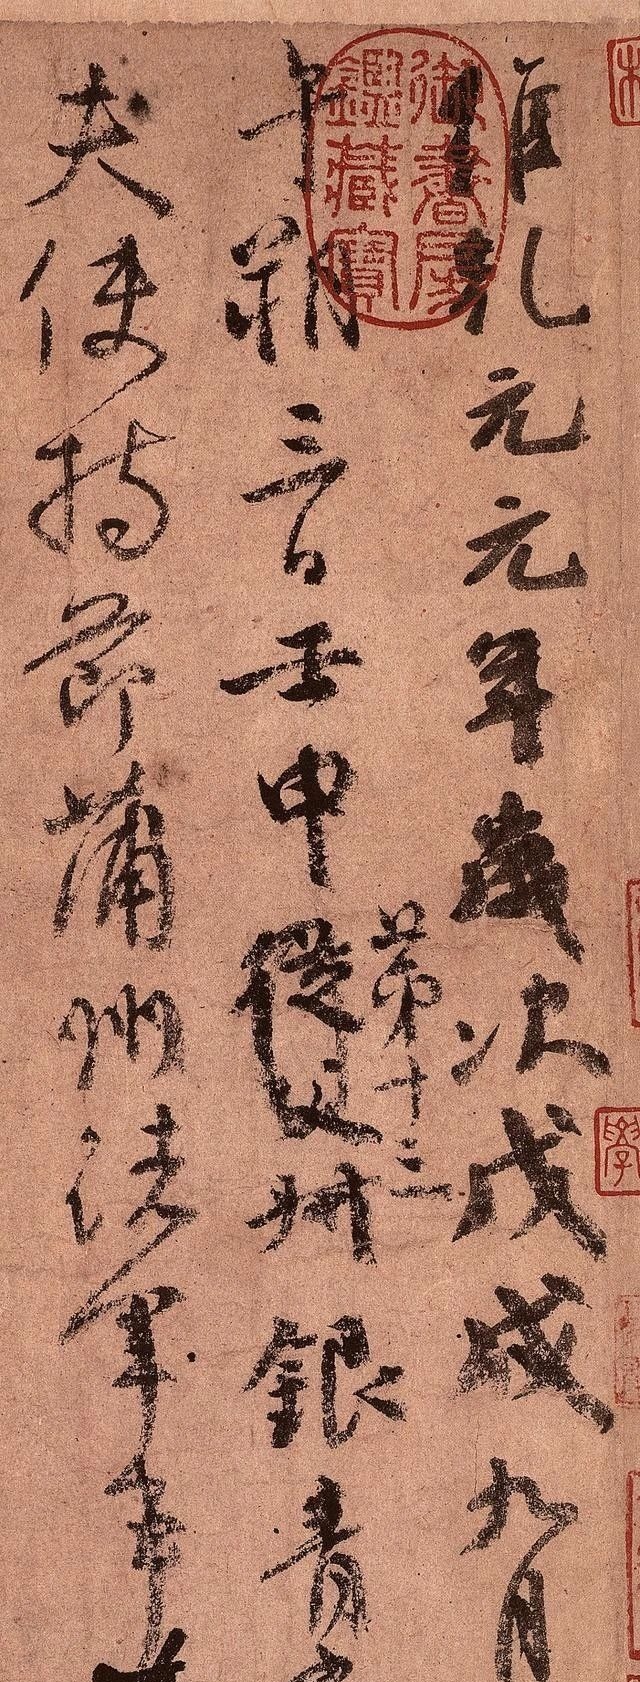 維乾元元年歲次戊戌九月
午朔三日壬申
第十三
從父叔銀青
夫使持節蒲州諸軍事
御書房
鑑藏寶